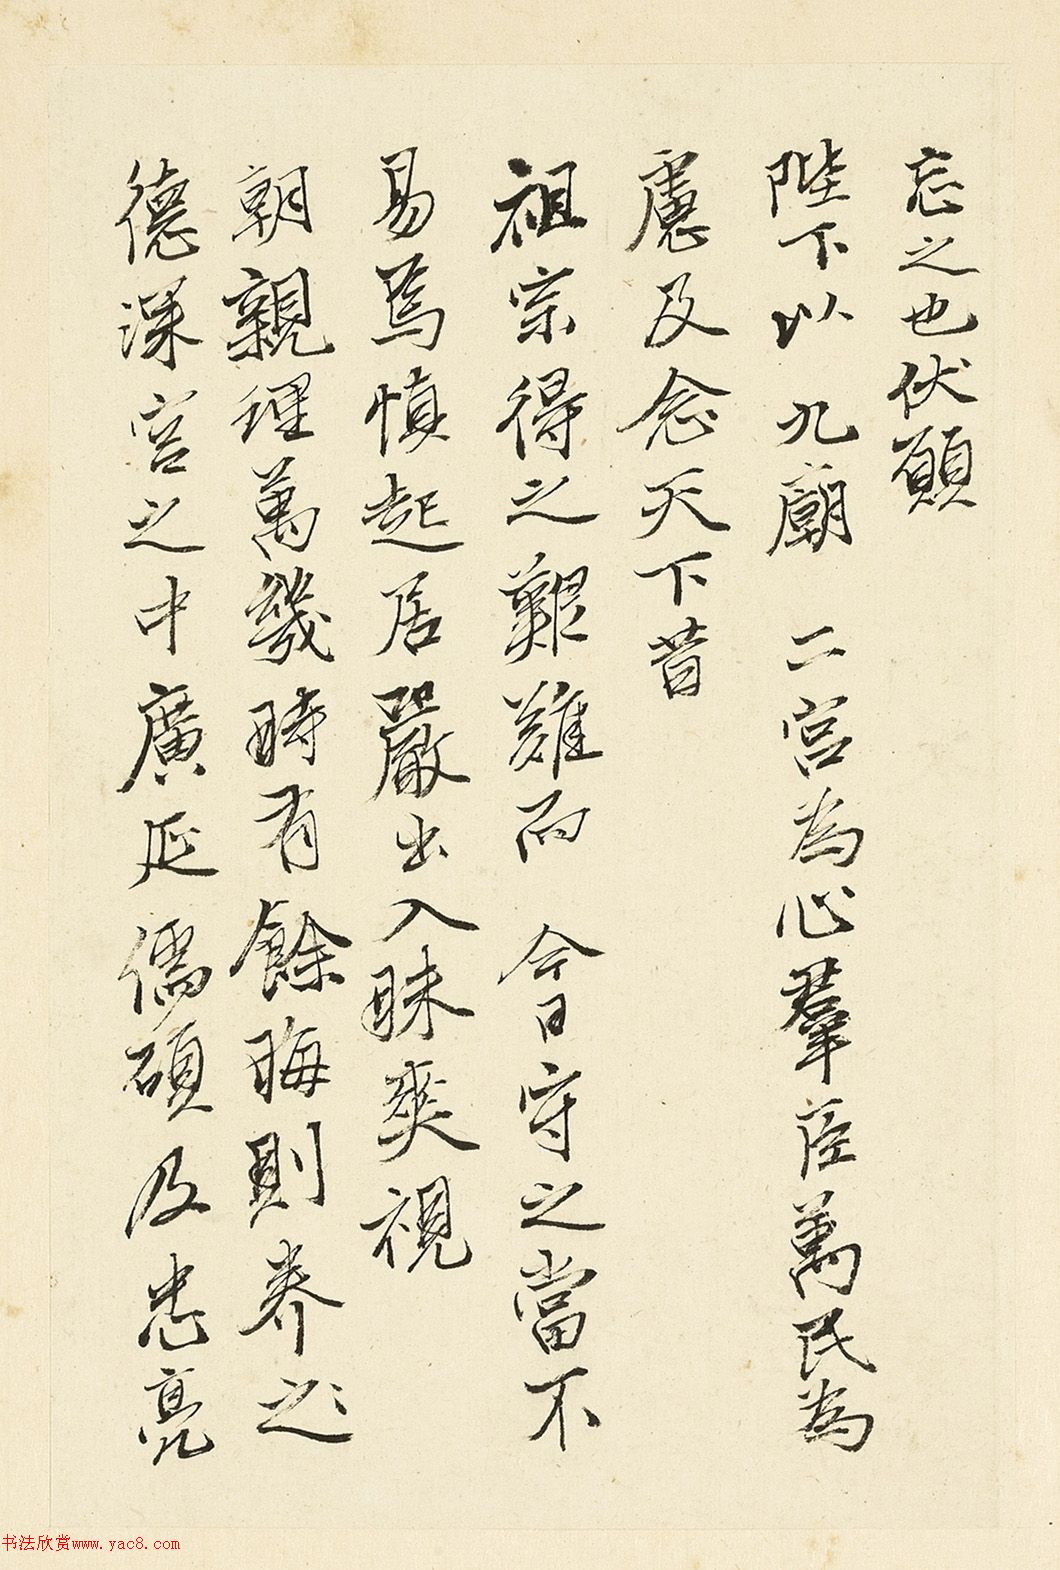 忘之也伏願
陛下以九廟二宮為心羣臣萬民為
慮及念天下昔
祖宗得之艱難而今日守之當不
易焉慎起居嚴出入昧爽視
朝親理萬幾時有餘晦則养之
德深宮之中廣延儒碩及忠亮
书法欣赏www.yac8.com